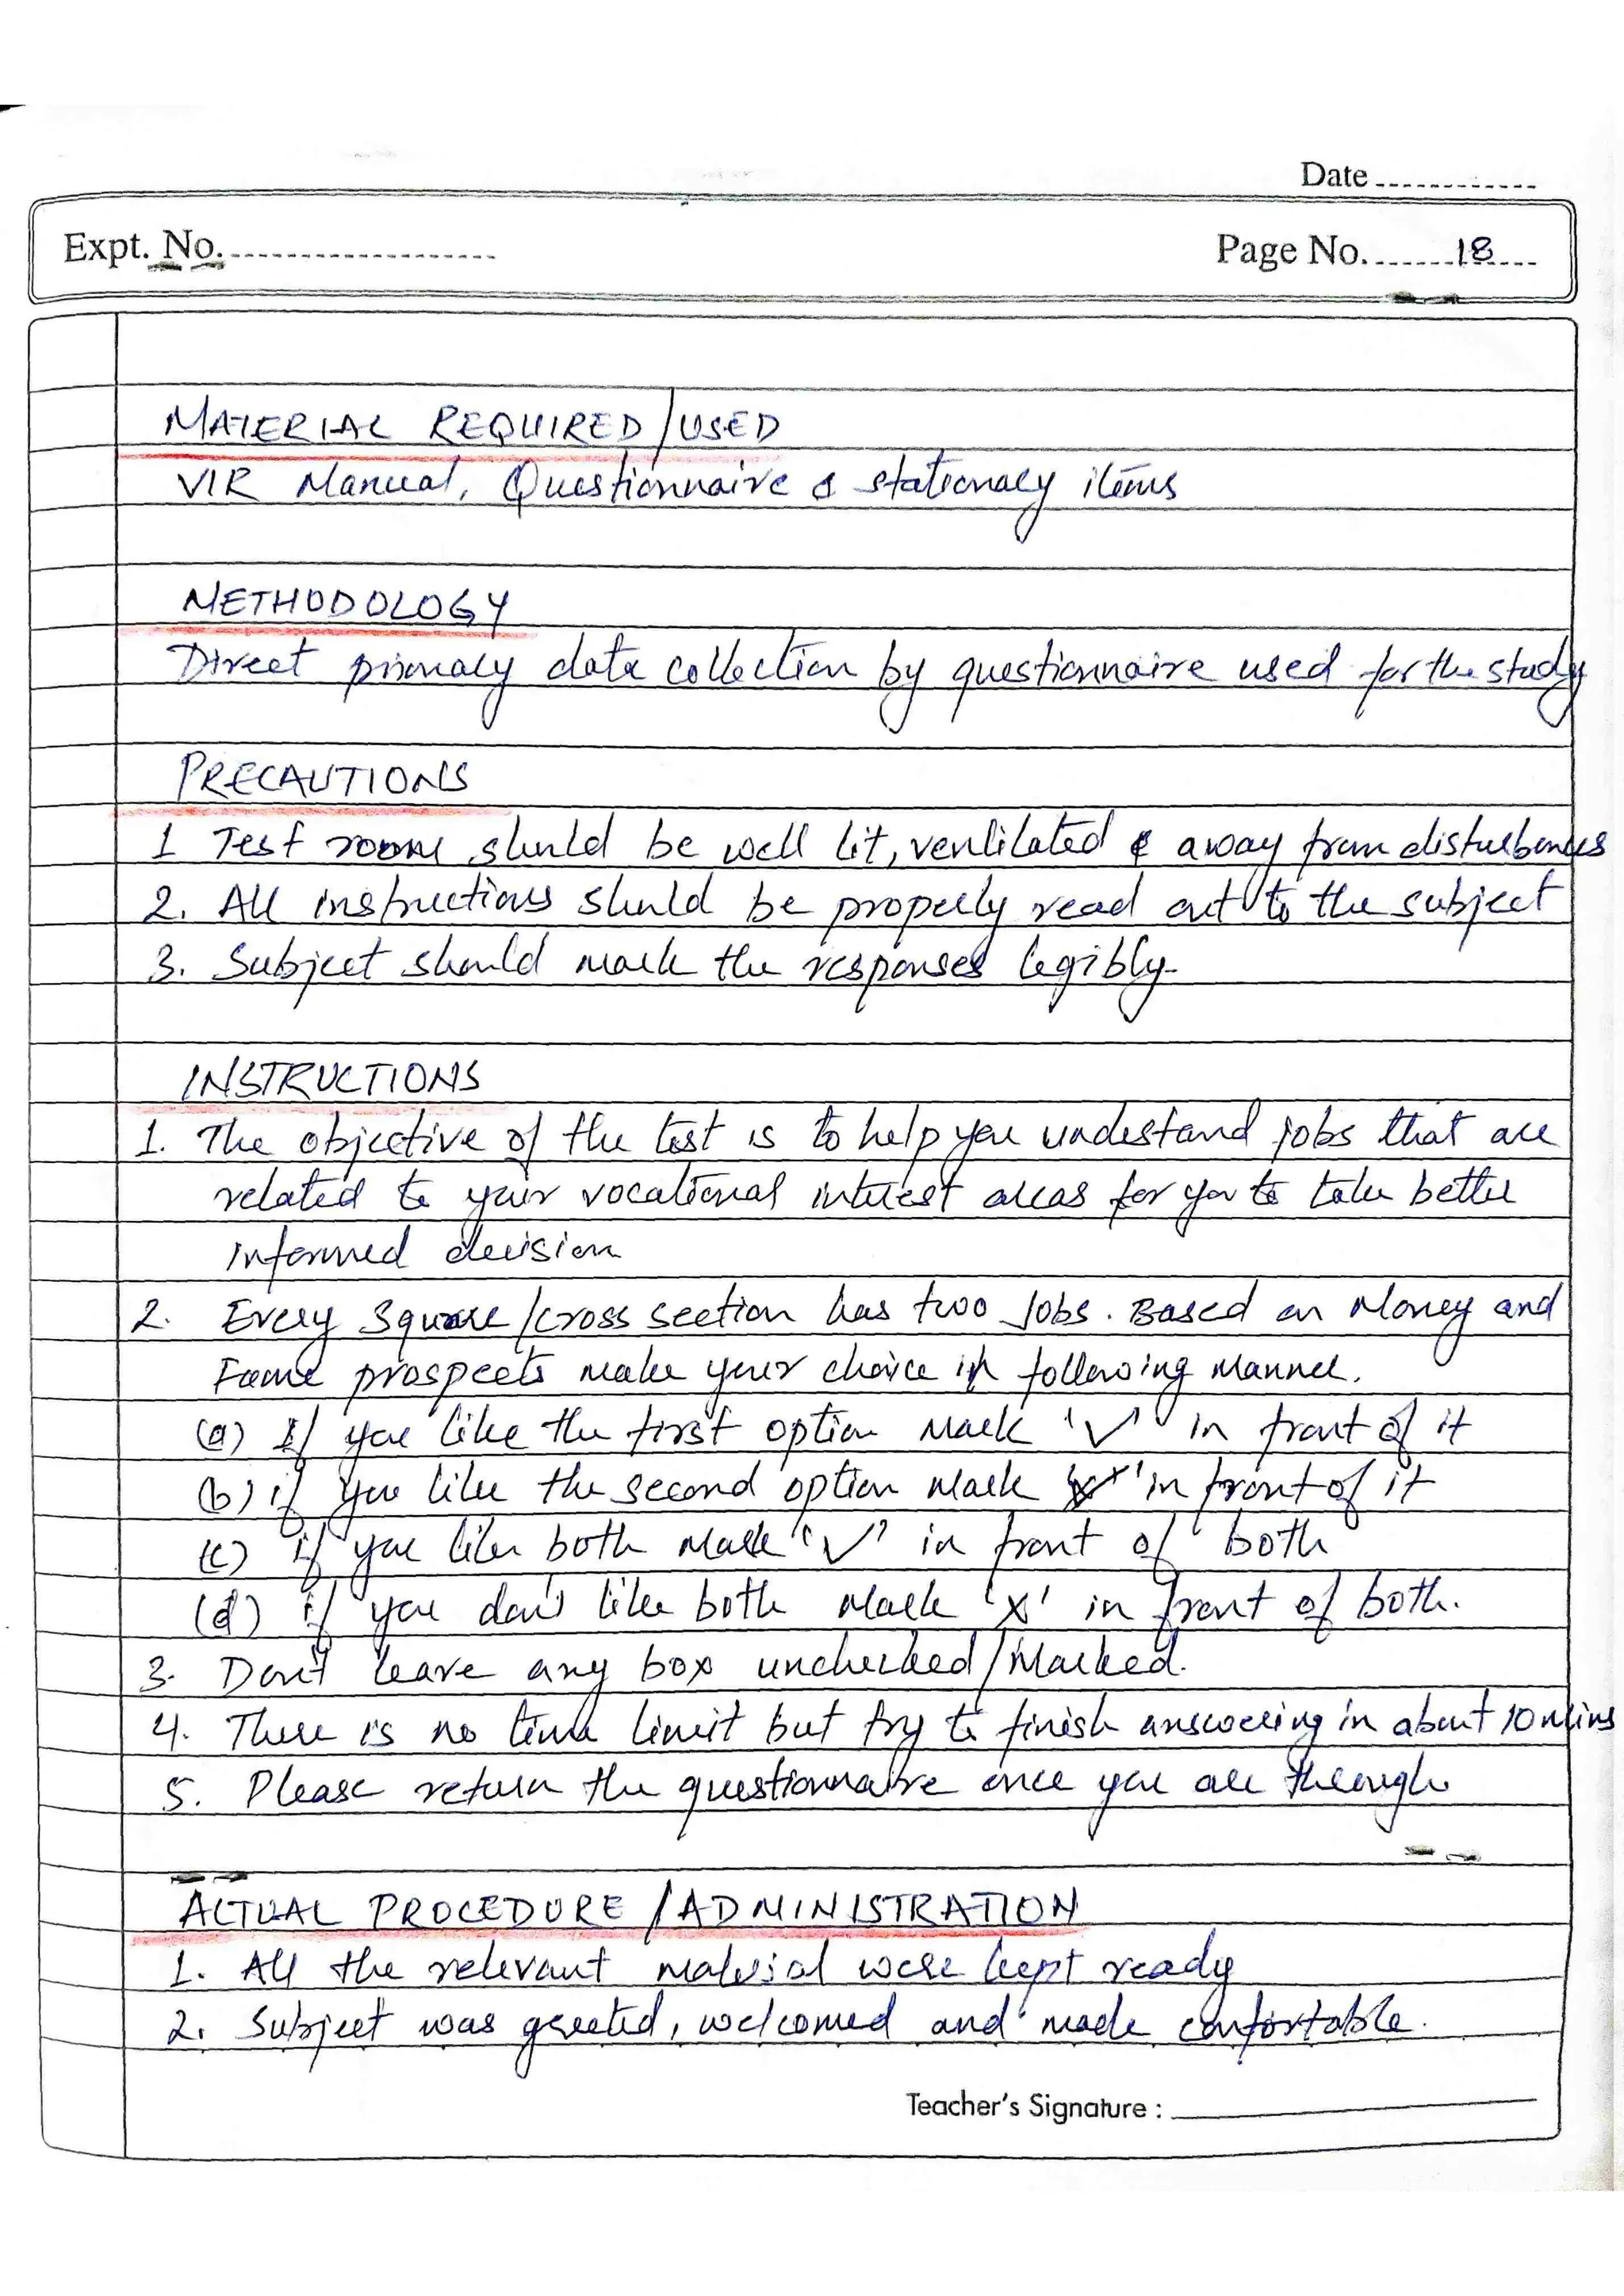 Date
Expt. No. Page No. 18
MATERIAL REQUIRED/USED
VIR Manual, Questionnaire & stationary items
METHODOLOGY
Direct primary data collection by questionnaire used for the study
PRECAUTIONS
1 Test room should be well lit, ventilated & away from disturbances
2. All instructions should be properly read out to the subject
3. Subject should mark the responses legibly.
INSTRUCTIONS
1. The objective of the test is to help you understand jobs that are
related to your vocational interest areas for you to take better
informed decision
2. Every Square/cross section has two Jobs. Based on Money and
Fame prospects make your choice in following manner.
(a) If you like the first option Mark '✓' in front of it
(b) if you like the second option Mark 'x' in front of it
(c) if you like both Mark '✓' in front of both
(d) if you don't like both Mark 'x' in front of both.
3. Don't leave any box unchecked/Marked.
4. There is no time limit but try to finish answering in about 10 mins
5. Please return the questionnaire once you are through
ACTUAL PROCEDURE/ADMINISTRATION
1. All the relevant material were kept ready
2. Subject was greeted, welcomed and made comfortable.
Teacher's Signature :